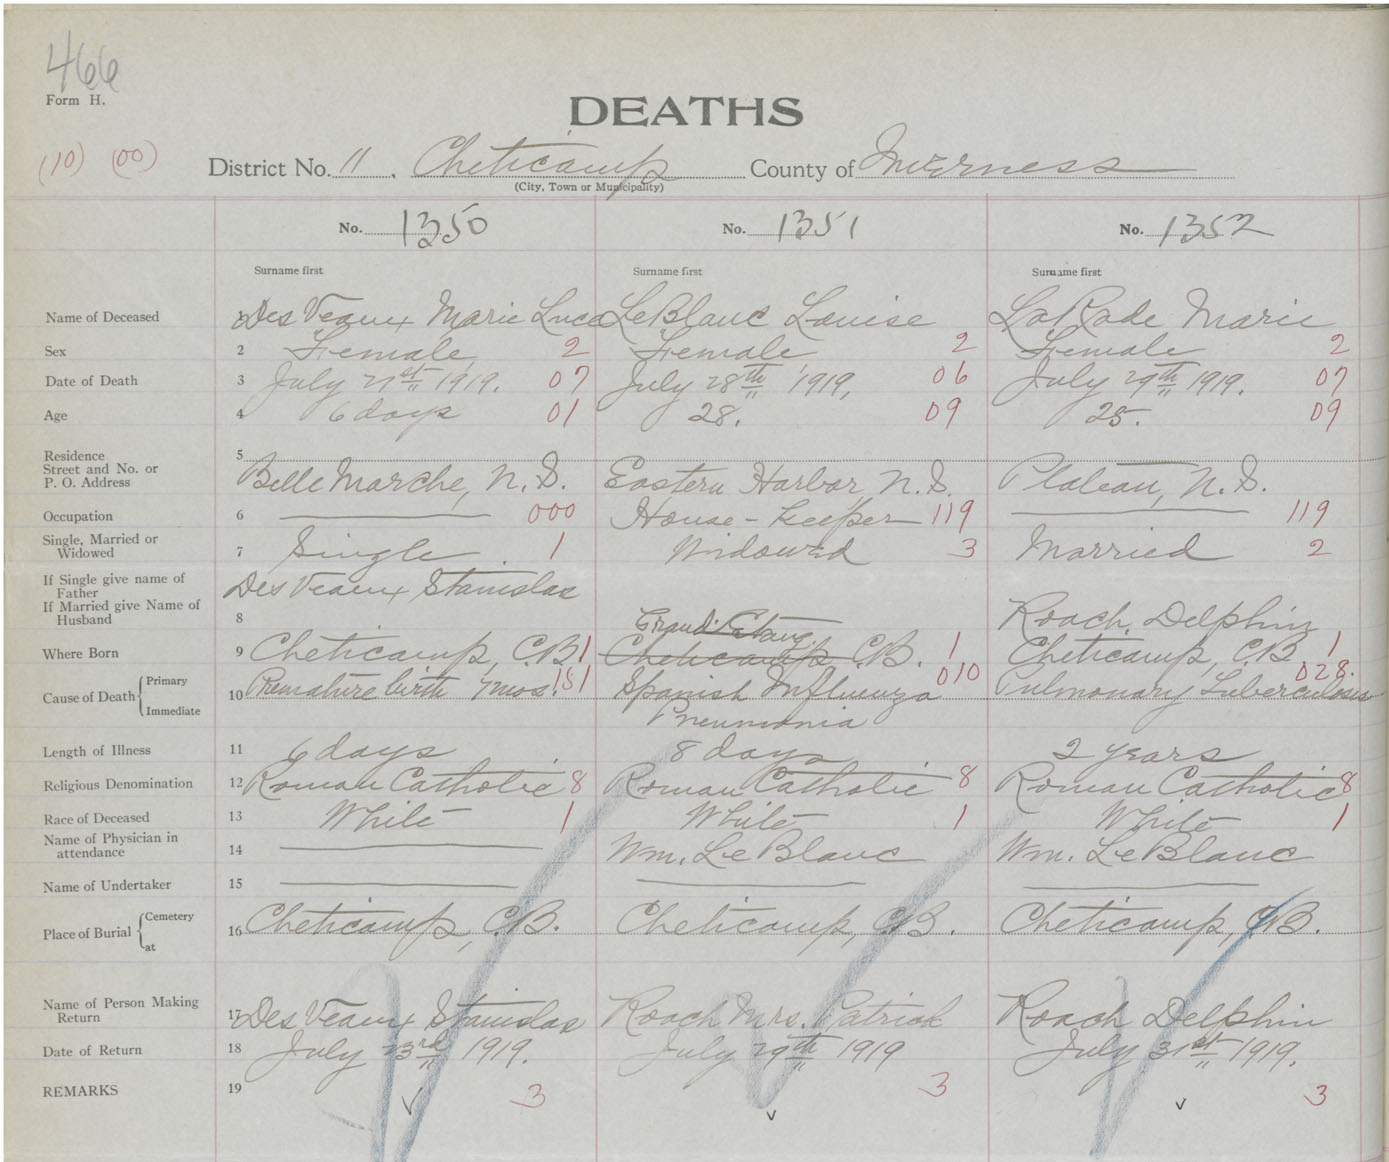 466
Form H.
DEATHS
(10) (00)
District No. 11. Cheticamp County of Inverness
(City, Town or Municipality)
No. 1350 No. 1351 No. 1352
Surname first Surname first Surname first
Name of Deceased 1 DesVeaux Marie Luce LeBlanc Louise LaRade Marie
Sex 2 Female 2 Female 2 Female 2
Date of Death 3 July 21st 1919. 07 July 28th 1919, 06 July 29th 1919. 07
Age 4 6 days 01 28. 09 25. 09
Residence 5
Street and No. or
P. O. Address Belle Marche, N.S. Eastern Harbor N.S. Plateau, N.S.
Occupation 6 000 House-keeper 119 119
Single, Married or
Widowed 7 Single 1 Widowed 3 Married 2
If Single give name of
Father DesVeaux Stanislas
If Married give Name of
Husband 8 Roach, Delphin
Grand Etang
Where Born 9 Cheticamp, C.B. 1 Cheticamp C.B. 1 Cheticamp, C.B 1
Cause of Death Primary 10 Premature birth 7 mos. 151 Spanish Influenza 010 Pulmonary Tuberculosis 028.
Immediate Pneumonia
Length of Illness 11 6 days 8 days 2 years
Religious Denomination 12 Roman Catholic 8 Roman Catholic 8 Roman Catholic 8
Race of Deceased 13 White 1 White 1 White 1
Name of Physician in
attendance 14 Wm. LeBlanc Wm. LeBlanc
Name of Undertaker 15
Place of Burial Cemetery 16 Cheticamp, C.B. Cheticamp, C.B. Cheticamp, C.B.
at
Name of Person Making
Return 17 DesVeaux Stanislas Roach Mrs. Patrick Roach Delphin
Date of Return 18 July 23rd 1919. July 29th 1919 July 31st 1919.
REMARKS 19 3 3 3